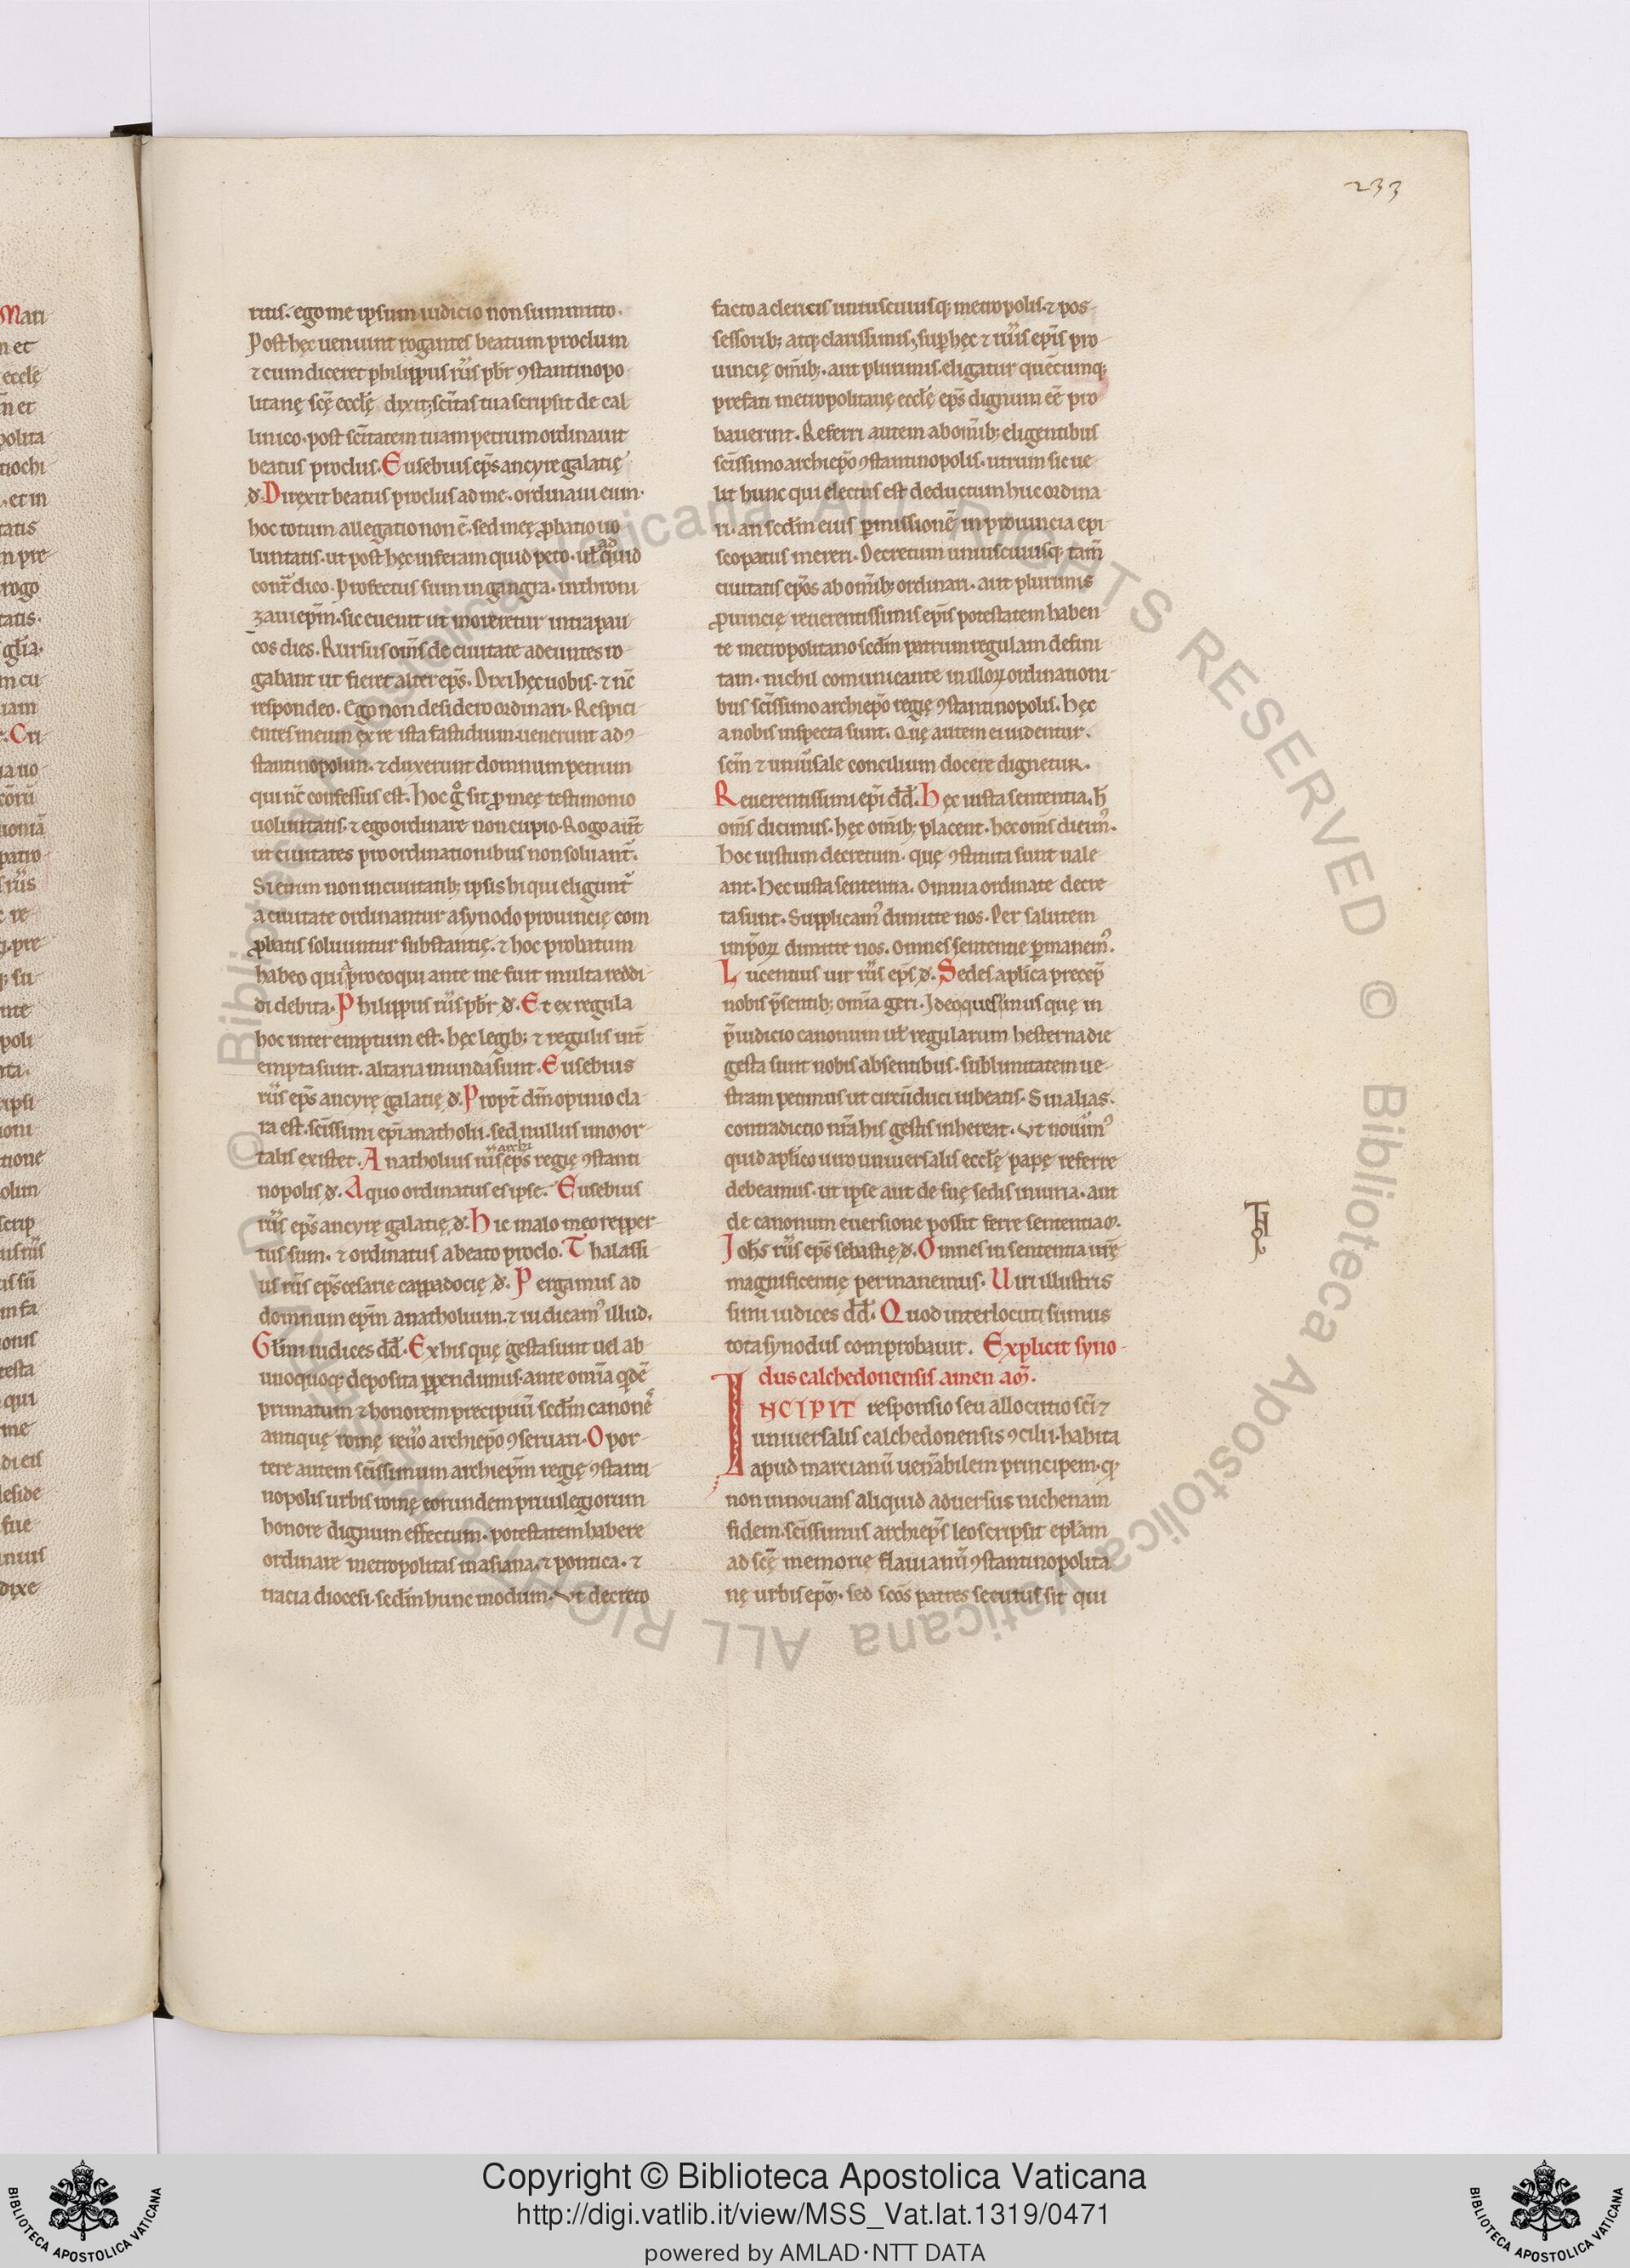 233
ritis. ego me ipsum iudicio non summitto.
Post hęc ueniunt rogantes beatum proclum
⁊ cum diceret philippus rũs pb̃r ꝯstantinopo
litanę scę̃ eccłę dixit. scĩtas tua scripsit de cal
linico. post scĩtatem tuam petrum ordinauit
beatus proclus. Eusebius ep̃s ancyre galatię
d̃. Direxit beatus proclus ad me. ordinaui eum.
hoc totum allegatio non ẽ. sed meę ꝓbatio uo
luntatis. ut post hęc inferam quid peto. uł ad quid
cont̃ dico. Profectus sum in gangra. inthroni
zaui ep̃m. sic euenit ut moreretur intra pau
cos dies. Rursus om̃s de ciuitate adeuntes ro
gabant ut fieret alter ep̃s. Dixi hęc uobis. ⁊ nc̃
respondeo. Ego non desidero ordinari. Respici
entes meum ex re ista fastidium uenerunt ad ꝯ
stantinopolim. ⁊ duxerunt domnum petrum
qui nc̃ confessus est. Hoc gͦ sit ꝓ meę testimonio
uoluntatis. ⁊ ego ordinare non cupio. Rogo aut̃
ut ciuitates pro ordinationibus non soluant̃.
Si enim non in ciuitatib; ipsis hi qui eligunt̃
a ciuitate ordinantur a synodo prouincię com
ꝓbatis soluuntur substantię. ⁊ hoc probatum
habeo quia pro eo qui ante me fuit multa reddi
di debita. Philippus rũs pb̃r d̃. Et ex regula
hoc interemptum est. hęc legib; ⁊ regulis int̃
empta sunt. altaria munda sunt. Eusebius
rũs ep̃s ancyrę galatię d̃. Propt̃ dm̃ opinio cla
ra est. scĩssimi ep̃i anatholii. sed nullus inmor
talis existet. Anatholius rũs archi ep̃s regię ꝯstanti
nopolis d̃. A quo ordinatus es ipse. Eusebius
rũs ep̃s ancyrę galatię d̃. Hic malo meo repper
tus sum. ⁊ ordinatus a beato proclo. Thalassi
us rũs ep̃s cesarie cappadocię d̃. Pergamus ad
domnum ep̃m anatholium. ⁊ iudicamꝰ illud.
Głmi iudices dd̃. Ex his quę gesta sunt uel ab
unoquoq; deposita ꝑpendimus. ante om̃ia qͥdẽ
primatum ⁊ honorem precipuũ scd̃m canonẽ
antiquę romę reũo archiep̃o ꝯseruari. Opor
tere autem scĩssimum archiep̃m regię ꝯstanti
nopolis urbis romę eorundem priuilegiorum
honore dignum effectum. potestatem habere
ordinare metropolitas in asiana. ⁊ pontica. ⁊
tracia diocesi. scd̃m hunc modum. Vt decreto
facto a clericis uniuscuiusq; metropolis. ⁊ pos
sessorib; atq; clarissimis, suꝑ hęc ⁊ rũis ep̃is pro
uincię om̃ib;. aut plurimis. eligatur quẽcumq;
prefati metropolitanę eccłę ep̃s dignum eẽ pro
bauerint. Referri autem ab om̃ib; eligentibus
scĩssimo archiep̃o ꝯstantinopolis. utrum sic ue
lit hunc qui electus est deductum huc ordina
ri. an scd̃m eius ꝑmissionẽ in prouincia epi
scopatus mereri. Decretum uniuscuiusq; tam̃
ciuitatis ep̃os ab om̃ib; ordinari. aut plurimis
ꝓuincię reuerentissimis ep̃is potestatem haben
te metropolitano scd̃m patrum regulam defini
tam. nichil comunicante in illoꝝ ordinationi
bus scĩssimo archiep̃o regię ꝯstantinopolis. Hęc
a nobis inspecta sunt. Quę autem ei uidentur.
scm̃ ⁊ uniũsale concilium docere dignetur.
Reuerentissimi ep̃i dd̃. Hęc iusta sententia. h̃
om̃s dicimus. hęc om̃ib; placent. hec om̃s dicimꝰ.
hoc iustum decretum. quę ꝯstituta sunt uale
ant. Hec iusta sententia. Omnia ordinate decre
ta sunt. Supplicamꝰ dimitte nos. Per salutem
imp̃oꝝ dimitte nos. Omnes sententię ꝑmanemꝰ.
Lucentius uir rũs ep̃s d̃. Sedes apłica precep̃
nobis p̃sentib; om̃ia geri. Ideoque simus quę in
p̃iudicio canonum uł regularum hesterna die
gesta sunt nobis absentibus. sublimitatem ue
stram petimus ut circũduci iubeatis. Sin alias.
contradictio nr̃a his gestis inhereat. Vt nouimꝰ
quid apłico uiro uniuersalis eccłę papę referre
debeamus. ut ipse aut de suę sedis iniuria. aut
de canonum euersione possit ferre sententiam.
Ioh̃s rũs ep̃s sebastię d̃. Omnes in sententia ur̃ę
magnificentię permanemus. Uiri illustris
simi iudices dd̃. Quod interlocuti sumus
tota synodus comprobauit. Explicit syno
dus calchedonensis amen am̃.
INCIPIT responsio seu allocutio scĩ ⁊
uniuersalis calchedonensis ꝯcilii. habita
apud marcianũ uenãbilem principem. qͥ
non innouans aliquid aduersus nichenam
fidem. scĩssimus archiep̃s leo scripsit epłam
ad scę̃ memorie flauianũ ꝯstantinopolita
nę urbis ep̃m. sed scõs patres secutus sit qui
Copyright © Biblioteca Apostolica Vaticana
http://digi.vatlib.it/view/MSS_Vat.lat.1319/0471
powered by AMLAD·NTT DATA
BIBLIOTECA APOSTOLICA VATICANA
BIBLIOTECA APOSTOLICA VATICANA